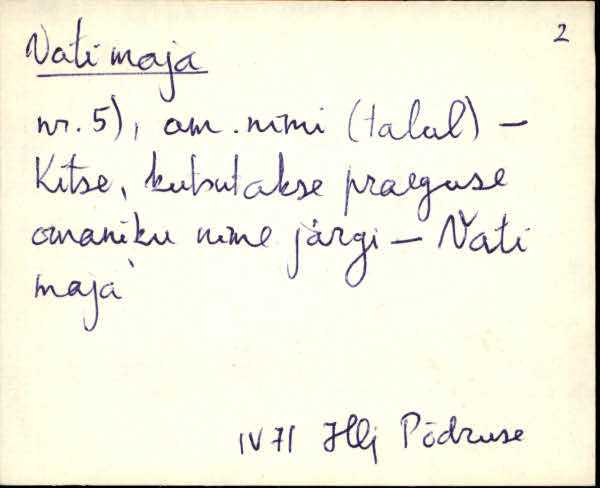 2
Vati maja
nr. 5), am. nimi (talul) –
Kitse, kutsutakse praeguse
omaniku nime järgi – Vati
maja
IV 71 Hlj Põdruse